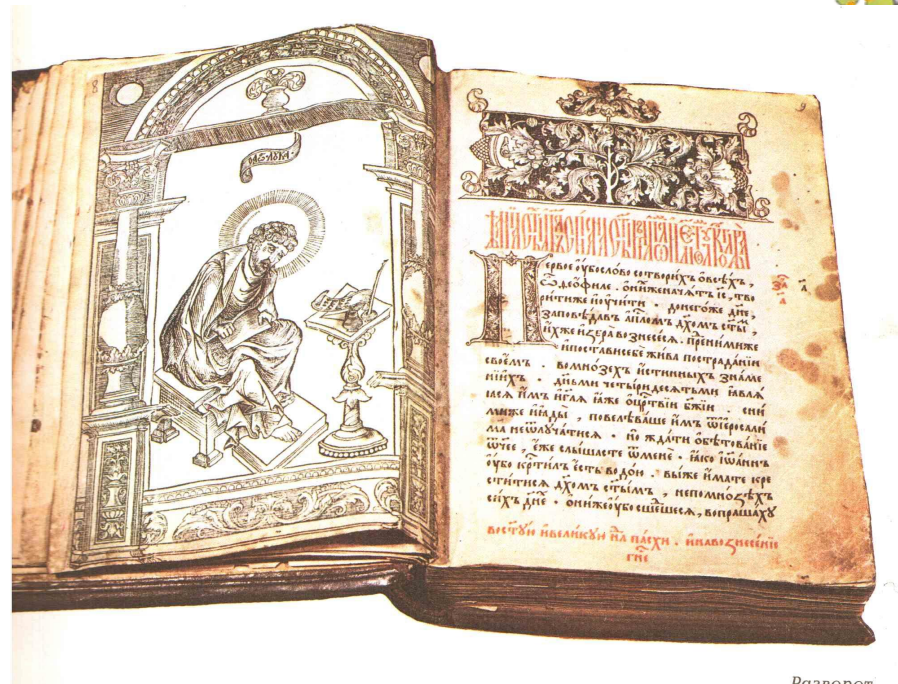 8
9
ервое ѹ҆́бо сло́во сотвори́хъ ѡ҆ всѣ́хъ,
ѽ ѳео́филе . ѡ҆ ни́хже начѧ́тъ і҆с҃, тво
ри́ти же и҆ ѹ҆чи́ти до него́же дн҃е,
заповѣ́давъ а҆пⷭ҇лом дх҃омъ ст҃ы́,
и҆́хже и҆збра̀ вознесесѧ . пре́д ни́миже
и҆ поста́ви себѐ жи́ва по страда́нїи
свое́мъ . во мно́зехъ и҆́стинныхъ зна́ме
нїи́хъ . дн҃ьми четы́ридесѧтьми ꙗ҆влѧ́ѧ
сѧ и҆́мъ и҆ гл҃ѧ ꙗ҆́же ѡ҆ црⷭ҇твїи бж҃їи . с ни́
миже и҆ ꙗ҆ды̀, повелѣ́ваше и҆́мъ ѿ і҆еросали́
ма не ѿлѹча́тисѧ . но жда́ти ѡ҆бѣтова́нїе
ѿчее, е҆́же слы́шасте ѿ менѐ . ꙗ҆́ко і҆ѡа́ннъ
ѹ҆́бо крⷭ҇ти́лъ є҆́сть водо́ю . вы́ же и҆́мате кре
сти́тисѧ дх҃омъ ст҃ы́мъ, не по мно́ѕѣхъ
си́хъ дн҃е . ѻ҆ни́же ѹ҆́бо сше́дшесѧ, вопраша́хѹ
во ст҃ѹ́ю и҆ вели́кѹю нⷣлѧ па́схи . и҆ на вознесе́нїе
гн҃е
Разворот